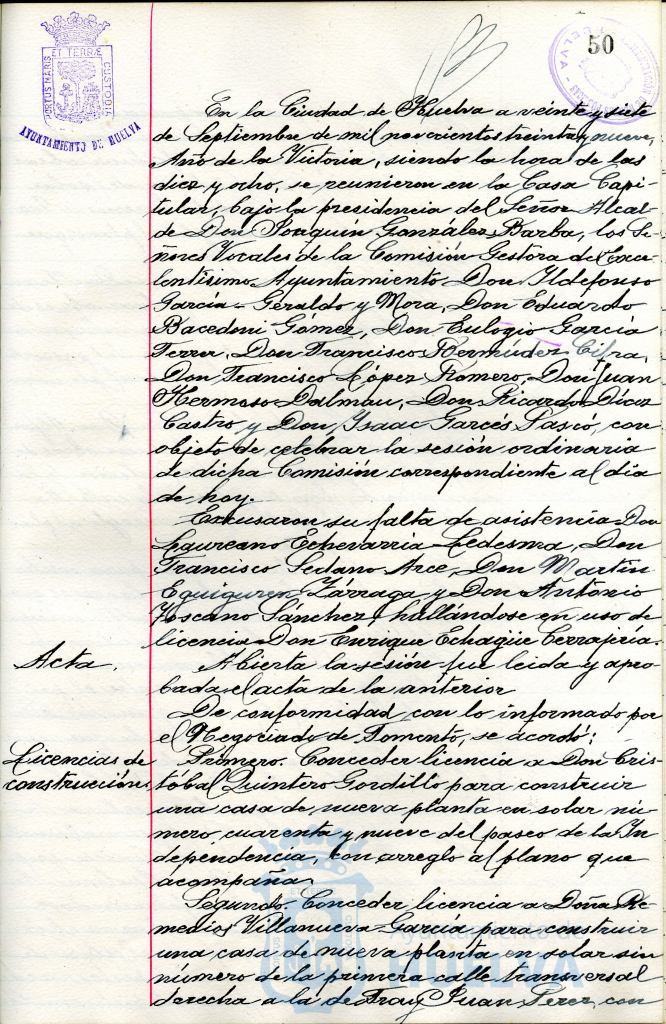 PORTUS MARIS ET TERRÆ CUSTODIA
AYUNTAMIENTO DE HUELVA
50
En la Ciudad de Huelva a veinte y siete
de Septiembre de mil novecientos treinta y nueve,
Año de la Victoria, siendo la hora de las
diez y ocho, se reunieron en la Casa Capi-
tular, bajo la presidencia del Señor Alcal-
de Don Joaquín González Barba, los Se-
ñores Vocales de la Comisión Gestora del Exce-
lentísimo Ayuntamiento Don Ildefonso
García-Geraldo y Mora, Don Eduardo
Bacedoni Gómez, Don Eulogio García
Ferrer, Don Francisco Bermúdez Cifra,
Don Francisco López Romero, Don Juan
Hermoso Dalmau, Don Ricardo Díaz
Castro y Don Isaac Garcés Pascó, con
objeto de celebrar la sesión ordinaria
de dicha Comisión correspondiente al día
de hoy.
Excusaron su falta de asistencia Don
Laureano Echevarria Ledesma, Don
Francisco Sedano Arce, Don Martín
Eguiguren Zárraga y Don Antonio
Toscano Sánchez, hallándose en uso de
licencia Don Enrique Echagüe Cerrajeria.
Acta.
Abierta la sesión fue leida y apro-
bada el acta de la anterior
De conformidad con lo informado por
el Negociado de Fomento, se acordó:
Licencias de
construcción
Primero. Conceder licencia a Don Cris-
tóbal Quintero Gordillo para construir
una casa de nueva planta en solar nú-
mero cuarenta y nueve del paseo de la In
dependencia, con arreglo al plano que
acompaña.
Segundo. Conceder licencia a Doña Re-
medios Villanueva García para construir
una casa de nueva planta en solar sin
número de la primera calle transversal
derecha a la de Fray Juan Perez, con
Ayuntamiento de
HUELVA